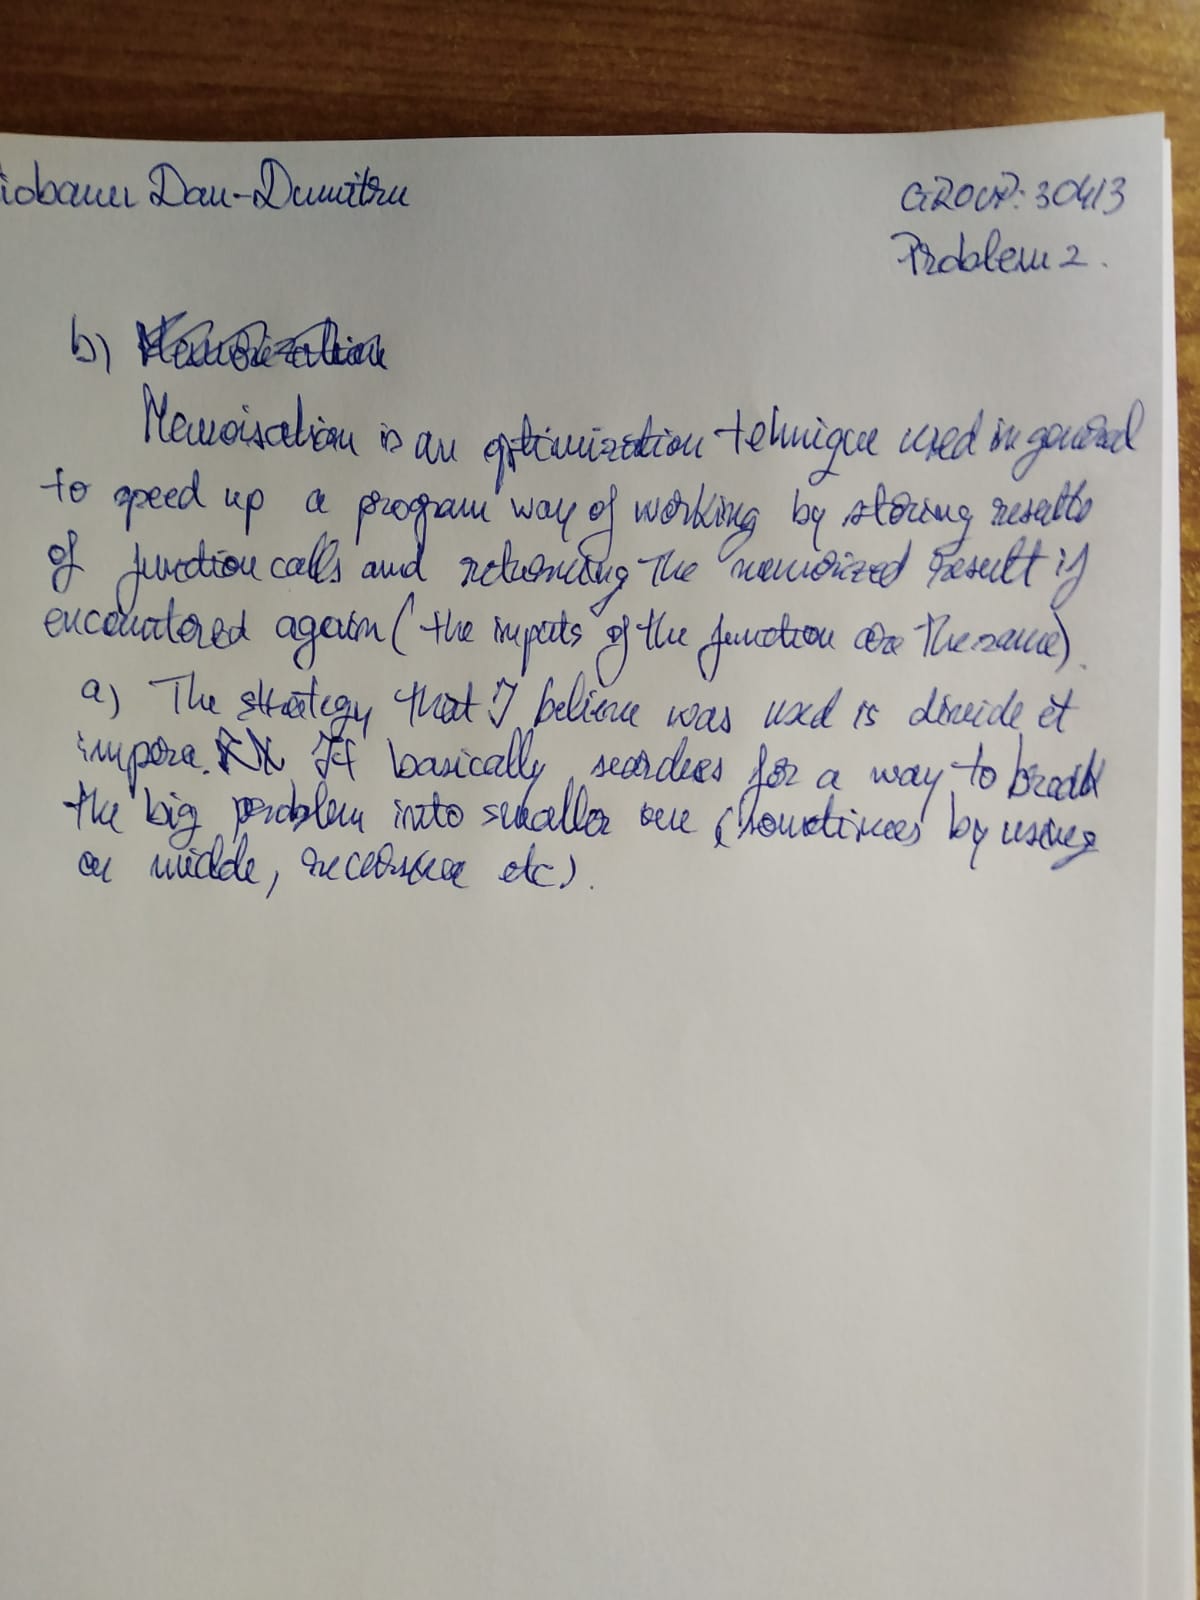 iobanu Dan-Dumitru
GROUP: 30413
Problem 2.
b)
Memoisation is an optimization tehnique used in general
to speed up a program way of working by storing results
of function calls and returning the memorized result if
encountered again (the inputs of the function are the same).
a) The strategy that I believe was used is divide et
impera. It basically searches for a way to break
the big problem into smaller one (sometimes by using
a midde, recursive etc).